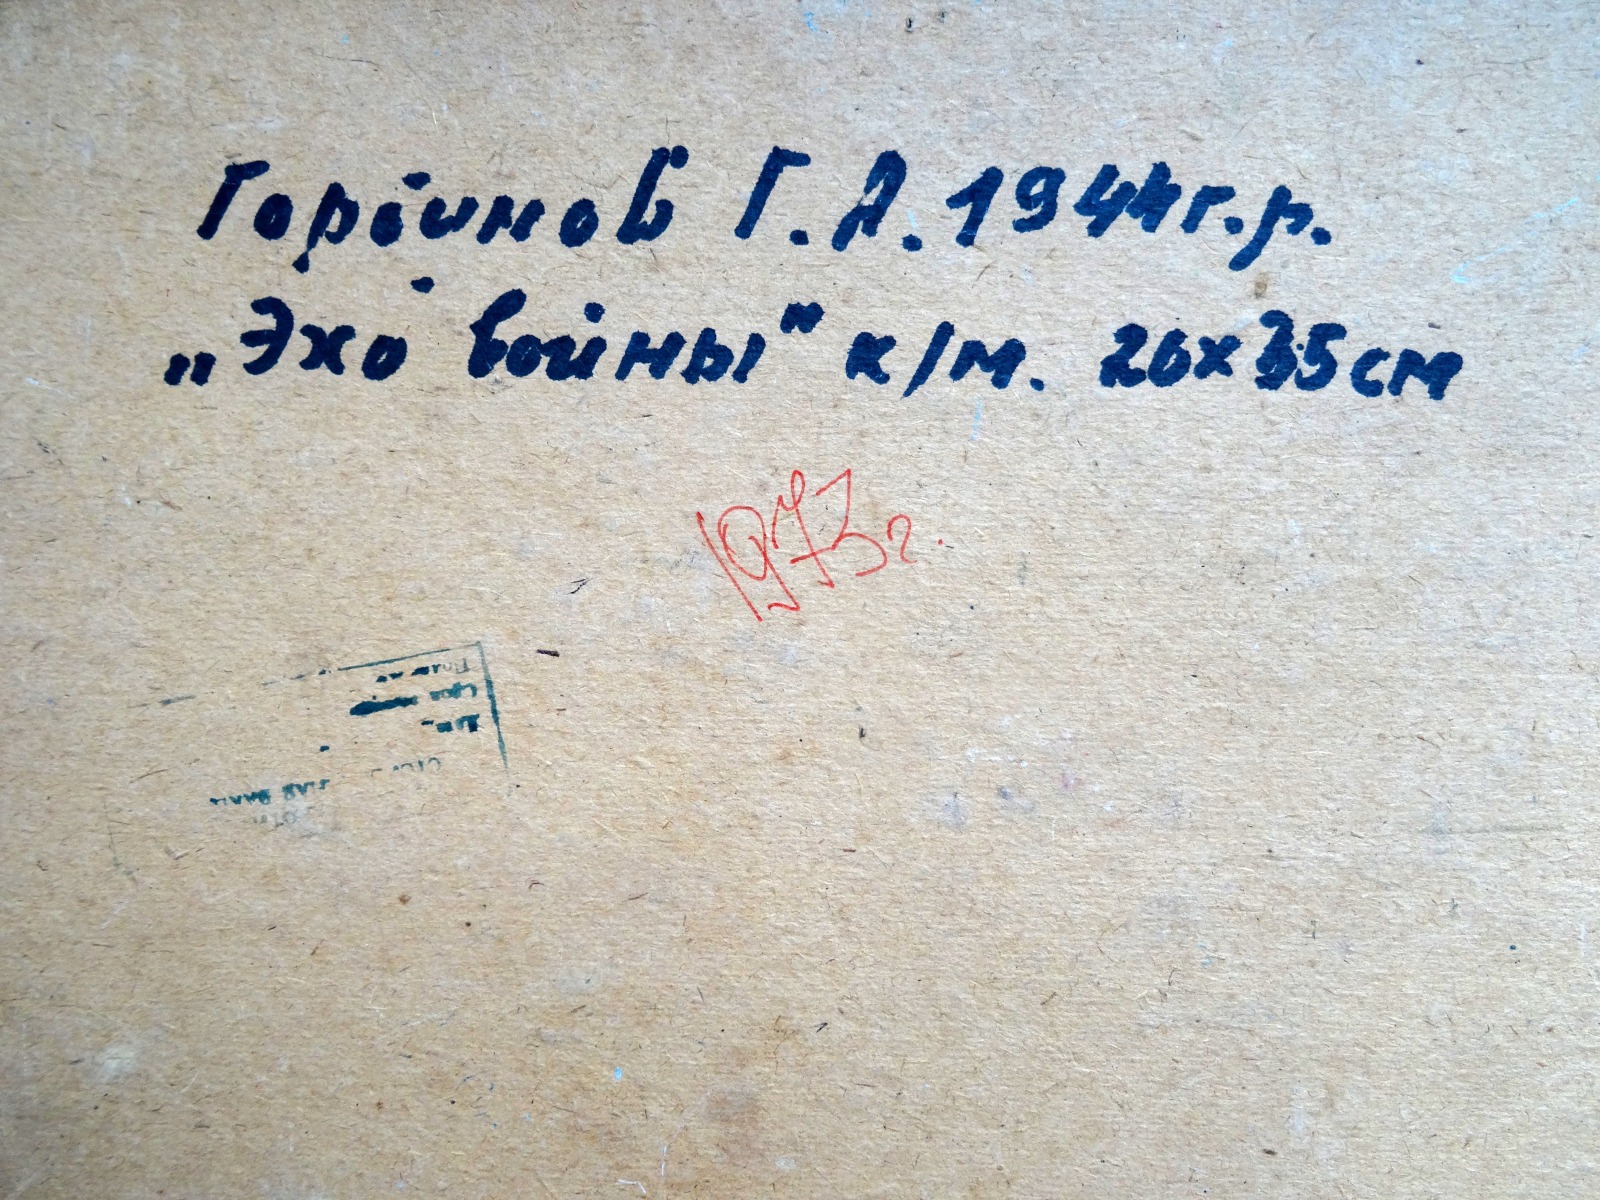 Горбинов Г. А. 1944 г.р.
„Эхо войны" к/м. 26х35см
1973 г.